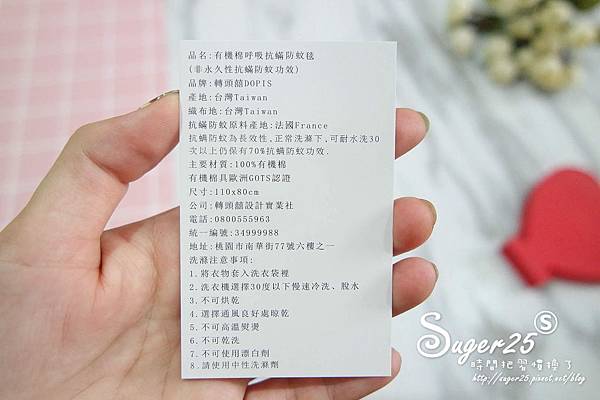 品名:有機棉呼吸抗蟎防蚊毯
(非永久性抗蟎防蚊功效)
品牌:轉頭囍DOPIS
產地:台灣Taiwan
織布地:台灣Taiwan
抗蟎防蚊原料產地:法國France
抗蟎防蚊為長效性,正常洗滌下,可耐水洗30
次以上仍保有70%抗蟎防蚊功效.
主要材質:100%有機棉
有機棉具歐洲GOTS認證
尺寸:110x80cm
公司:轉頭囍設計實業社
電話:0800555963
統一編號:34999988
地址:桃園市南華街77號六樓之一
洗滌注意事項:
1.將衣物套入洗衣袋裡
2.洗衣機選擇30度以下慢速冷洗、脫水
3.不可烘乾
4.選擇通風良好處晾乾
5.不可高溫熨燙
6.不可乾洗
7.不可使用漂白劑
8.請使用中性洗滌劑
Suger25 S
時間把習慣換了
http://suger25.pixnet.net/blog